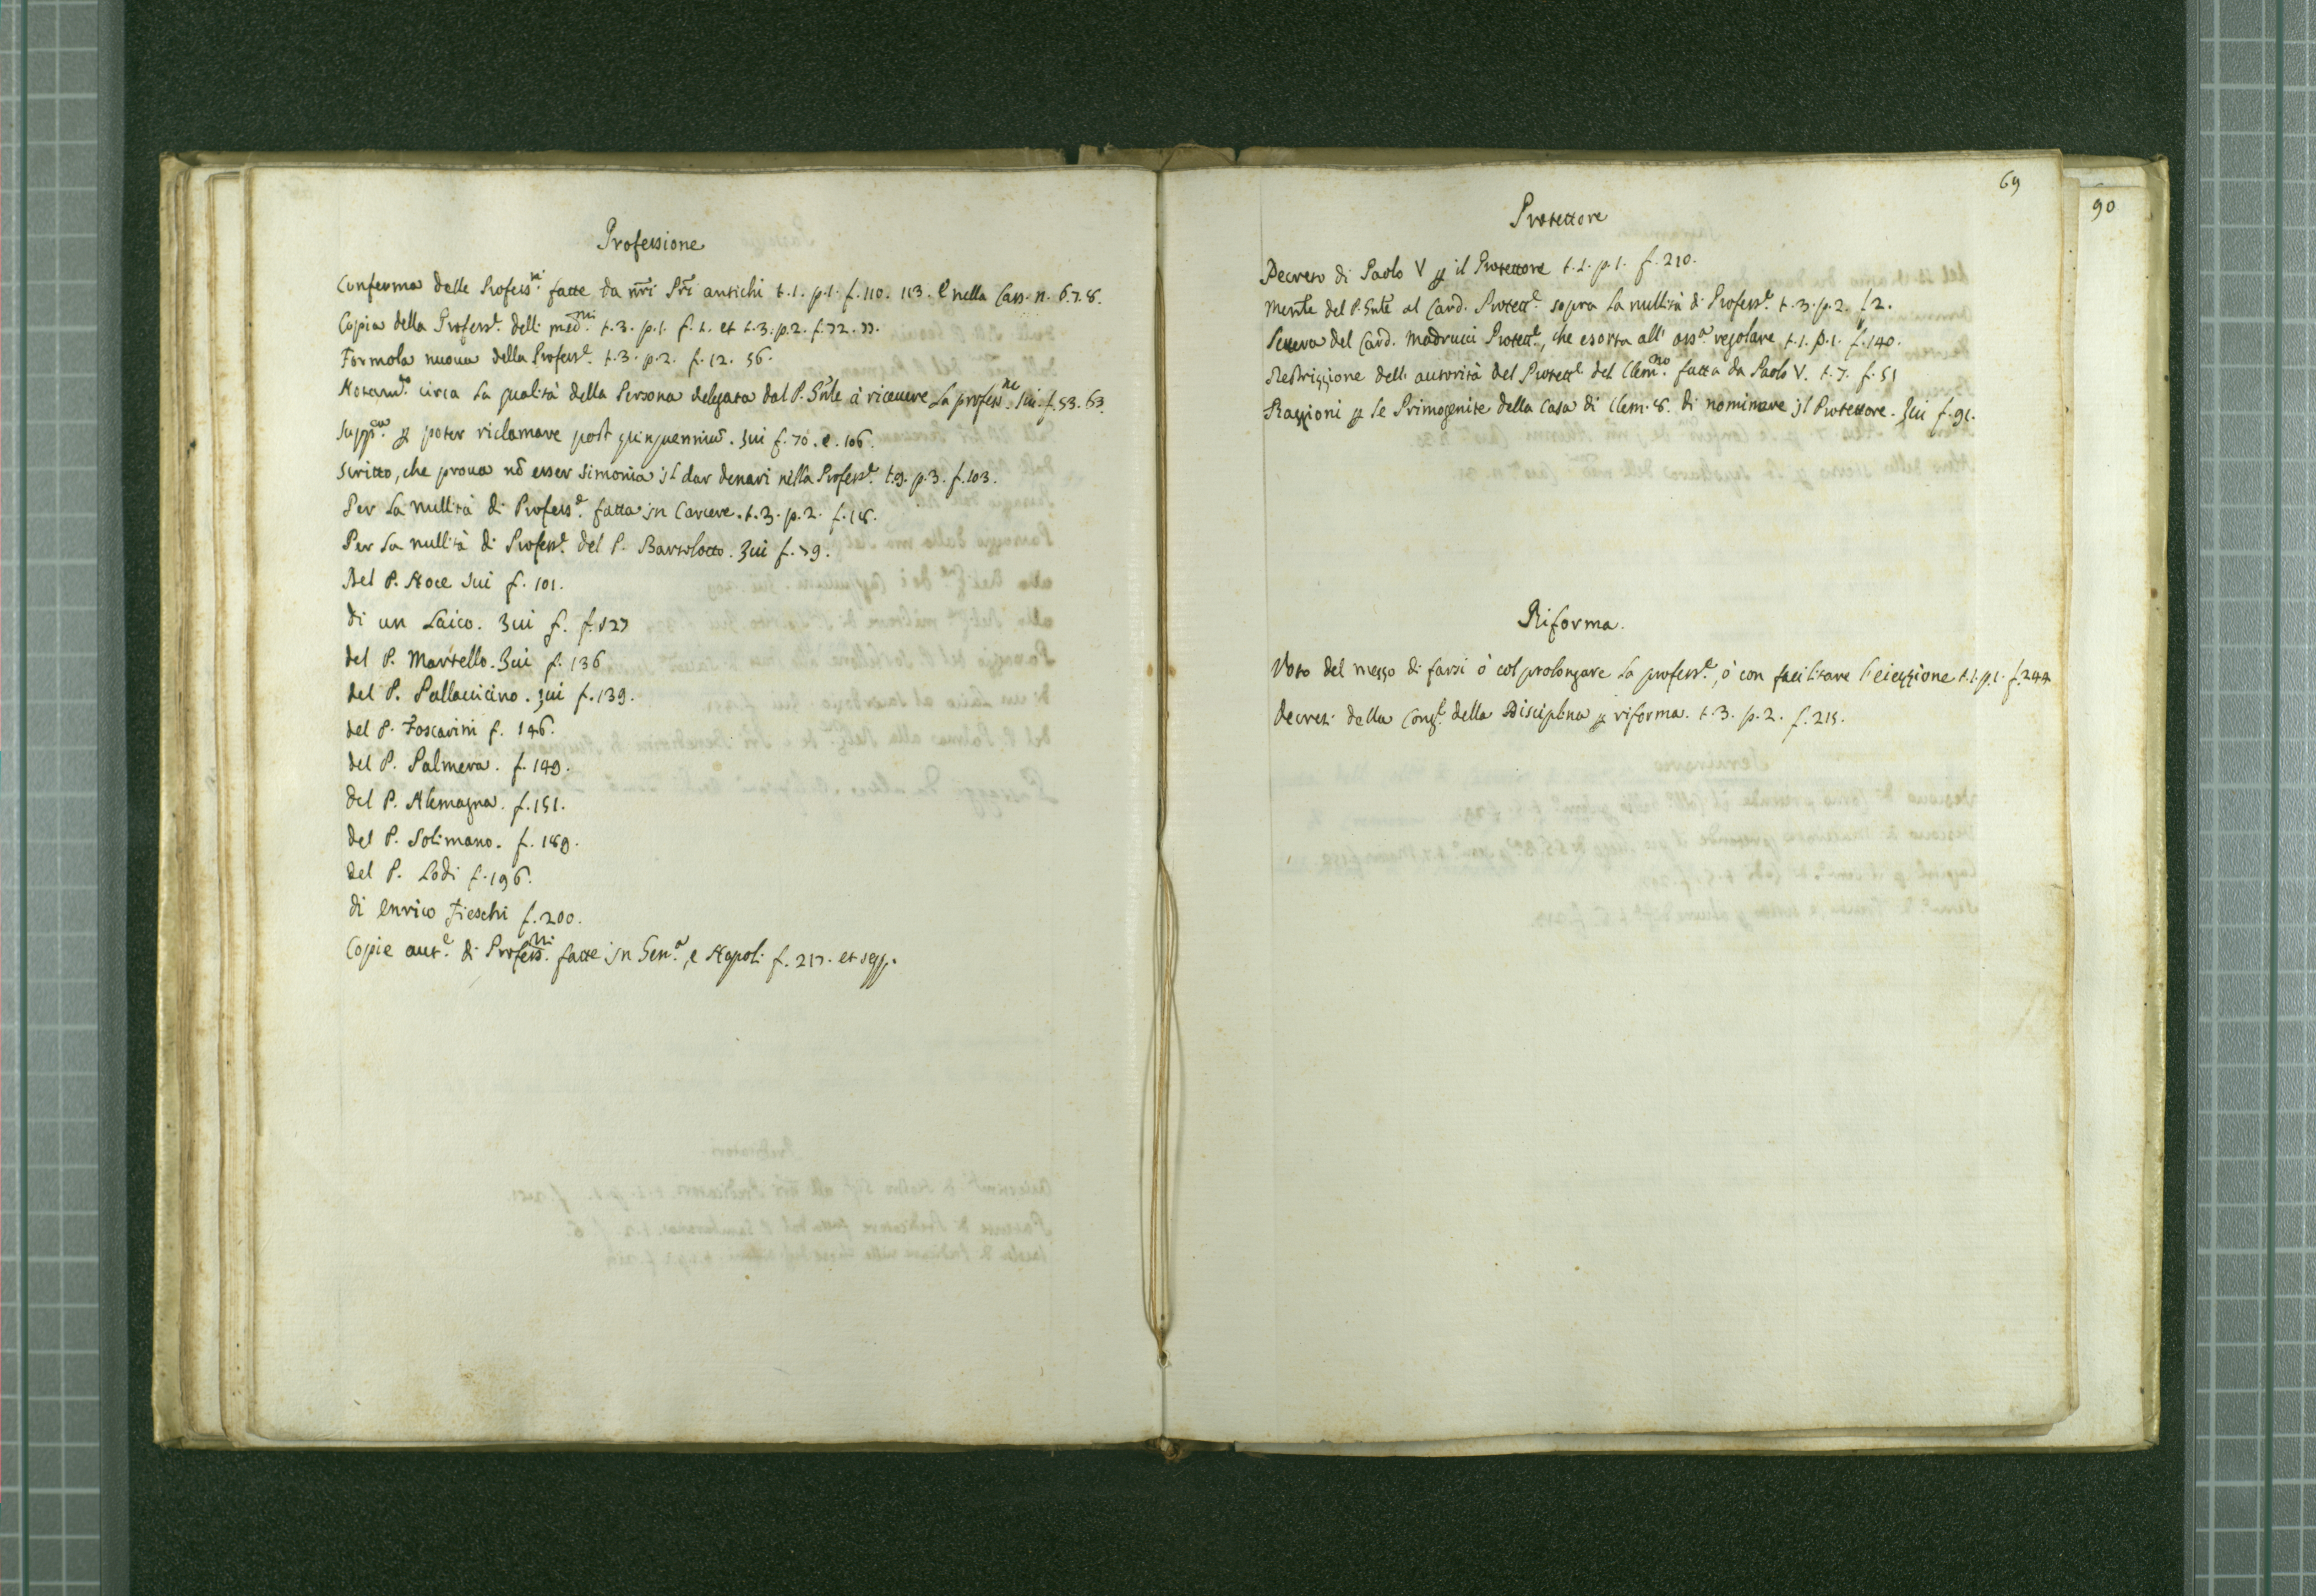 Professione
Conferma delle Profess.ni fatte da nr̃i Pr̃i antichi t.1. p.1. f.110. 113. e nella Cass. n. 6.7.8.
Copia della Profess.e delli med.mi t.3. p.1. f.1. et t.3. p.2. f.72. 77.
Formola nuova della Profess.e t.3. p.2. f.12. 56.
circa la qualità della Persona delegata dal P. Gñle à ricevere la profess.ne Iui. f.53. 63.
Supp.ca ꝑ poter riclamare post quinquenniũ. Iui f.70. e. 106.
Scritto, che proua nõ esser simonia il dar denari nella Profess.e t.9. p.3. f.103.
Per la nullità di Profess.e fatta in Carcere. t.3. p.2. f.18.
Per la nullità di Profess.e del P. Bartolotto. Iui f.79.
Del P. Noce Iui f. 101.
di un Laico. Iui f. f.127
del P. Martello. Iui f. 136
del P. Pallauicino. Iui f.139.
del P. Foscarini f. 146.
del P. Palmera. f.149.
del P. Alemagna. f.151.
del P. Solimano. f. 189.
del P. Lodi f.196.
di Enrico Fieschi f.200.
Copie aut.e di Profess.ni fatte in Gen.a, e Napoli f. 217. et seqq.
69
90
Protettore
Decreto di Paolo V ꝑ il Protettore t.1. p.1. f.210.
del P. Gñle al Card. Protett.e sopra la nullità di Profess.e t.3. p.2. f.2.
Lettera del Card. Madrucci Protett.e, che esorta all' oss.a regolare t.1. p.1. f.140.
Restrizzione dell' autorità del Protett.e del Clem.no fatta da Paolo V. t.7. f.51
Raggioni ꝑ le Primogenite della Casa di Clem. 8. di nominare il Protettore. Iui f.91.
Riforma.
Voto del mezzo di farsi ò col prolongare la profess.e, ò con facilitare l'eiezzione t.1. p.1. f.244
Decreti della Cong.e della Disciplina ꝑ riforma. t.3. p.2. f.215.